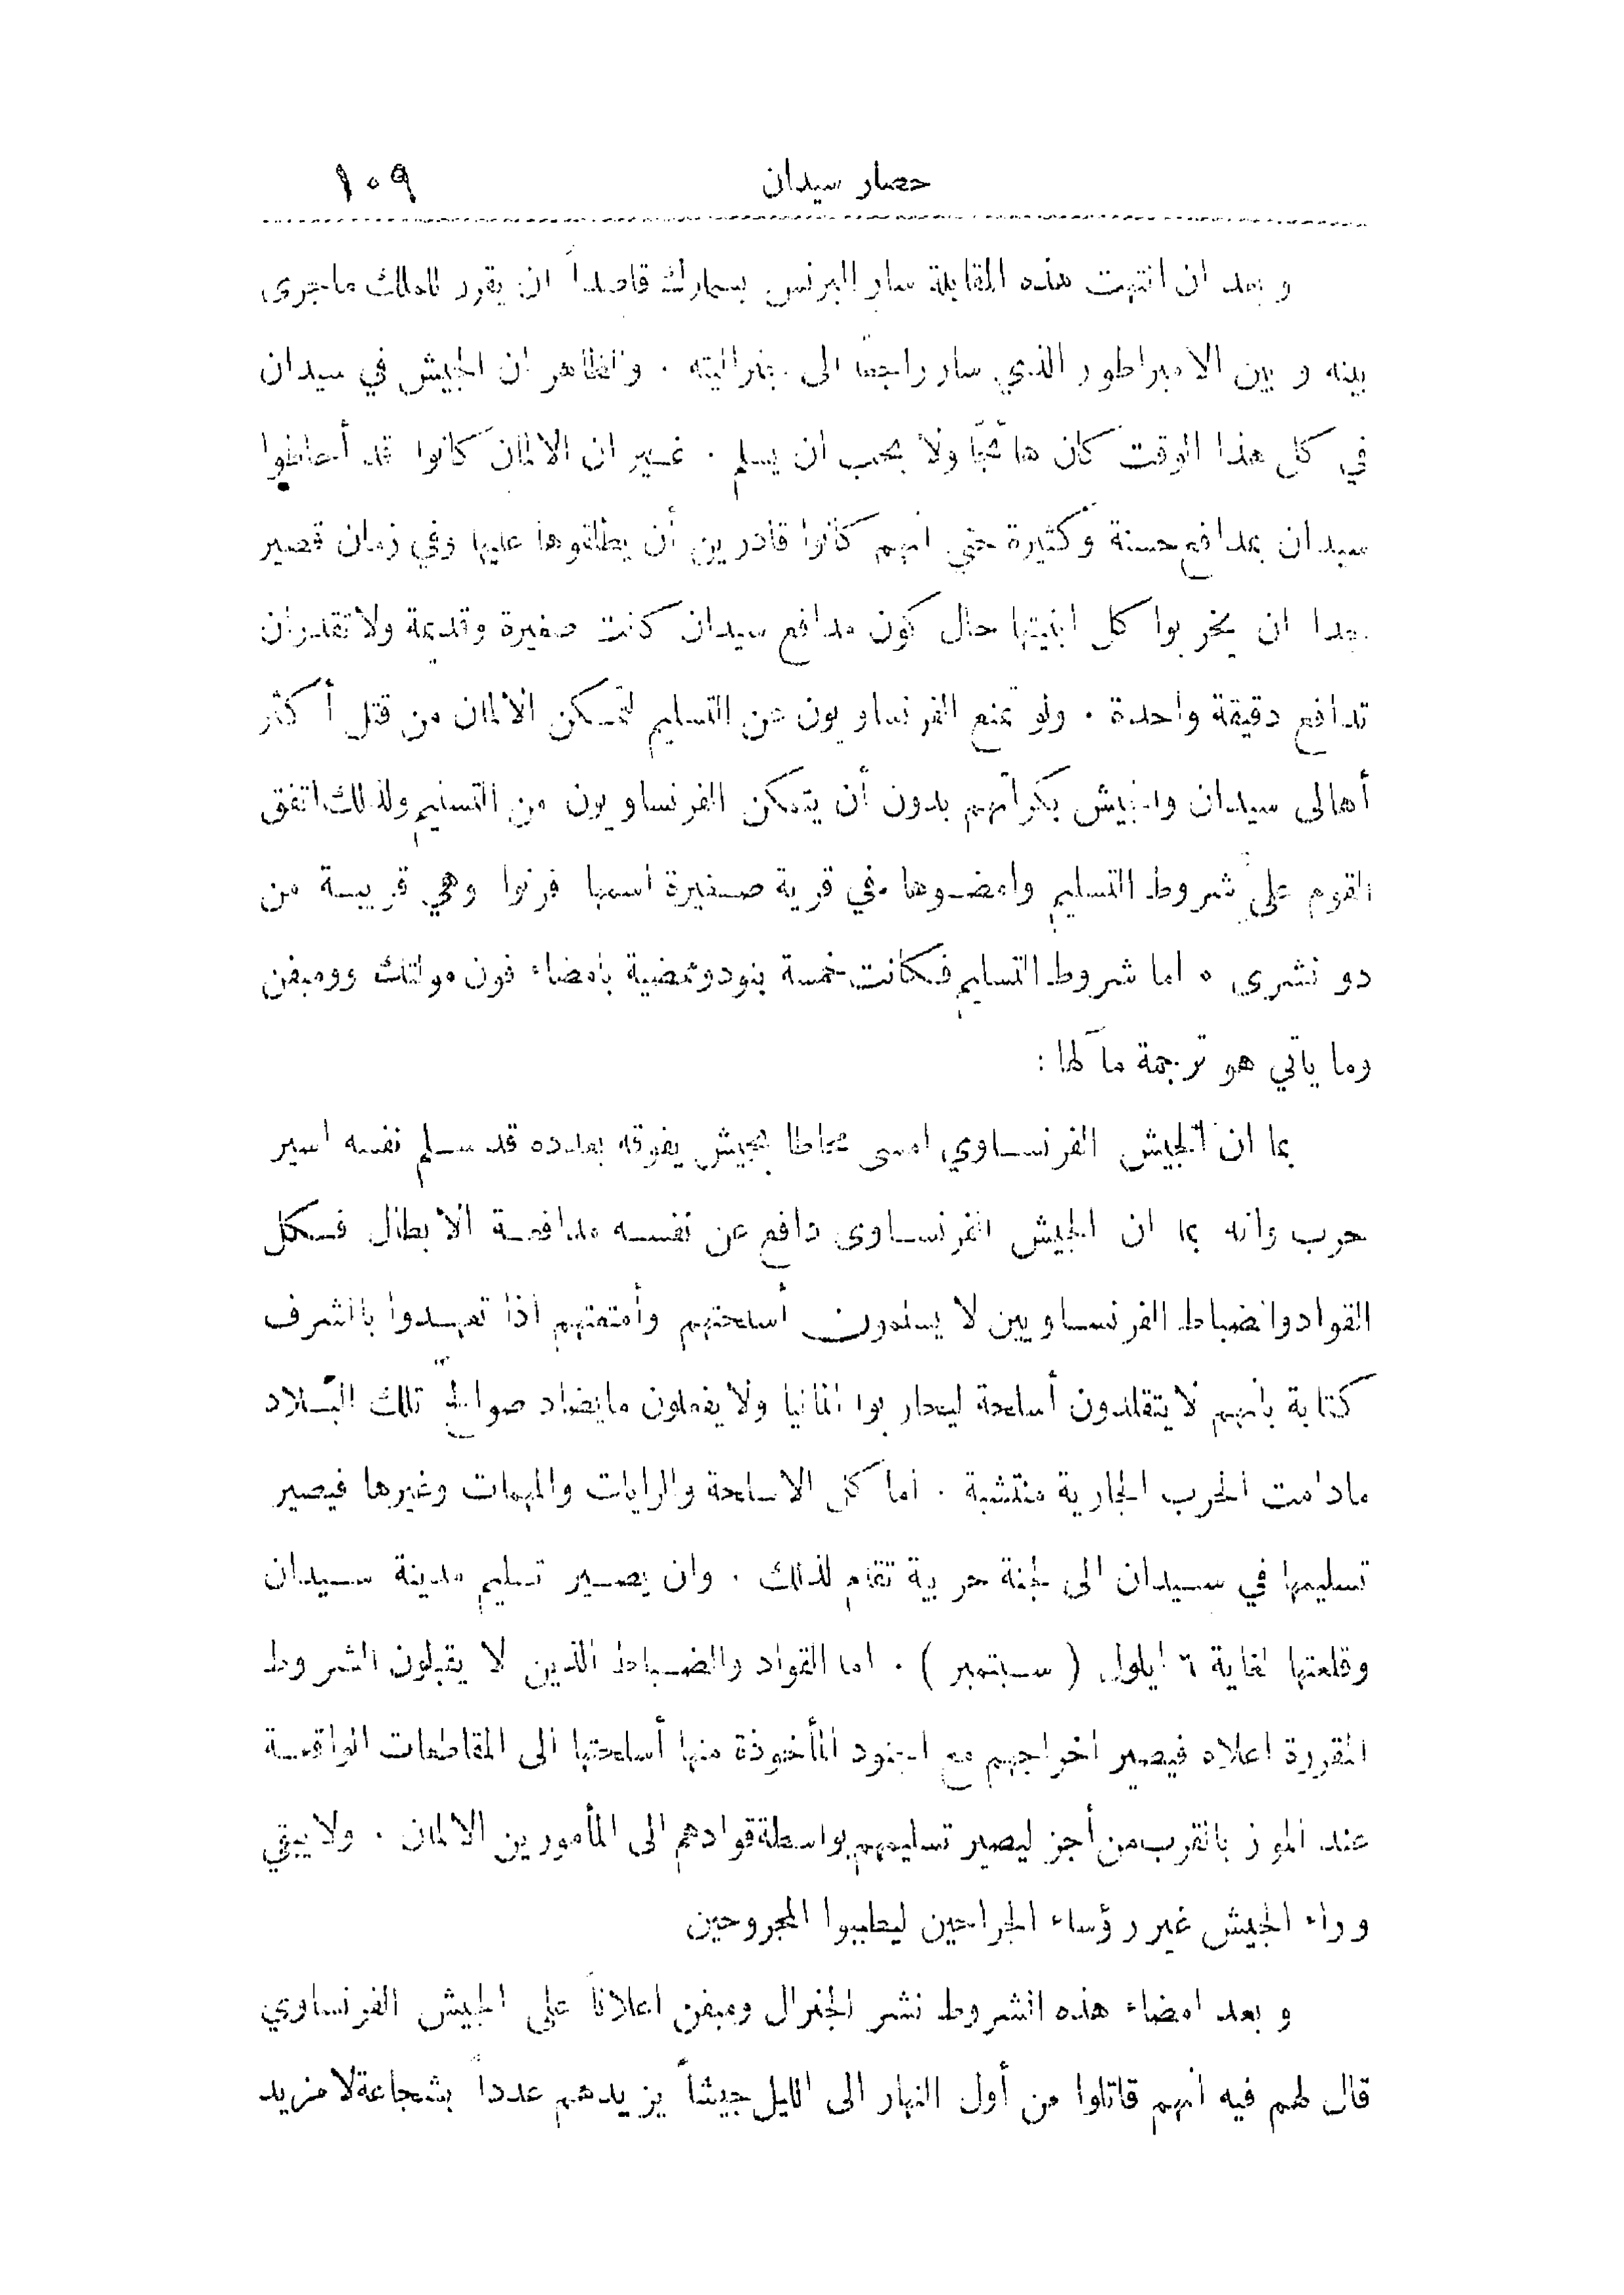 حصار سيدان ١٠٩
وبعد ان انتهت هذه المقابلة سار البرنس بسمارك قاصداً ان يقرر للملك ماجرى
بينه وبين الامبراطور الذي سار راجعاً الى جنراليته . والظاهر ان الجيش في سيدان
في كل هذا الوقت كان هائجاً ولا يحب ان يسلم . غير ان الالمان كانوا قد أحاطوا
سيدان بمدافع حسنة وكثيرة حتى انهم كانوا قادرين أن يطلقوها عليها وفي زمان قصير
جدا ان يخربوا كل ابنيتها حال كون مدافع سيدان كانت صغيرة وقديمة ولا تقدر ان
تدافع دقيقة واحدة . ولو تمنع الفرنساويون عن التسليم لتمكن الالمان من قتل أكثر
أهالى سيدان والجيش بكرأتهم بدون أن يتمكن الفرنساويون من التسليم ولذلك اتفق
القوم على شروط التسليم وامضوها في قرية صغيرة اسمها فرنوا وهي قريبة من
دو نشرى ٠ اما شروط التسليم فكانت خمسة بنود وممضية بامضاء فون مولتك وومبفن
وما ياتي هو ترجمة مآلها :
بما ان الجيش الفرنساوي امسى محاطا بجيش يفوقه بعدده قد سلم نفسه اسير
حرب وانه بما ان الجيش الفرنساوى دافع عن نفسه مدافعة الابطال فكل
القواد والضباط الفرنساويين لا يسلمون أسلحتهم وأمتعتهم اذا تعهدوا بالشرف
كتابة بأنهم لا يتقلدون أسلحة ليحاربوا المانيا ولا يفعلون مايضاد صوالح تلك البلاد
مادامت الحرب الجارية منتشبة . اما كل الاسلحة والرايات والمهمات وغيرها فيصير
تسليمها في سيدان الى لجنة حربية تقام لذلك . وان يصير تسليم مدينة سيدان
وقلعتها لغاية ٦ ايلول ( سبتمبر ) . اما القواد والضباط الذين لا يقبلون الشروط
المقررة اعلاه فيصير اخراجهم مع الجنود المأخوذة منها أسلحتها الى المقاطعات الواقعة
عند الموز بالقرب من أجز ليصير تسليمهم بواسطة قوادهم الى المأمورين الالمان . ولا يبقي
وراء الجيش غير رؤساء الجراحين ليطببوا المجروحين
وبعد امضاء هذه الشروط نشر الجنرال ومبفن اعلاناً على الجيش الفرنساوي
قال لهم فيه انهم قاتلوا من أول النهار الى الليل جيشاً يزيدهم عدداً بشجاعة لا مزيد